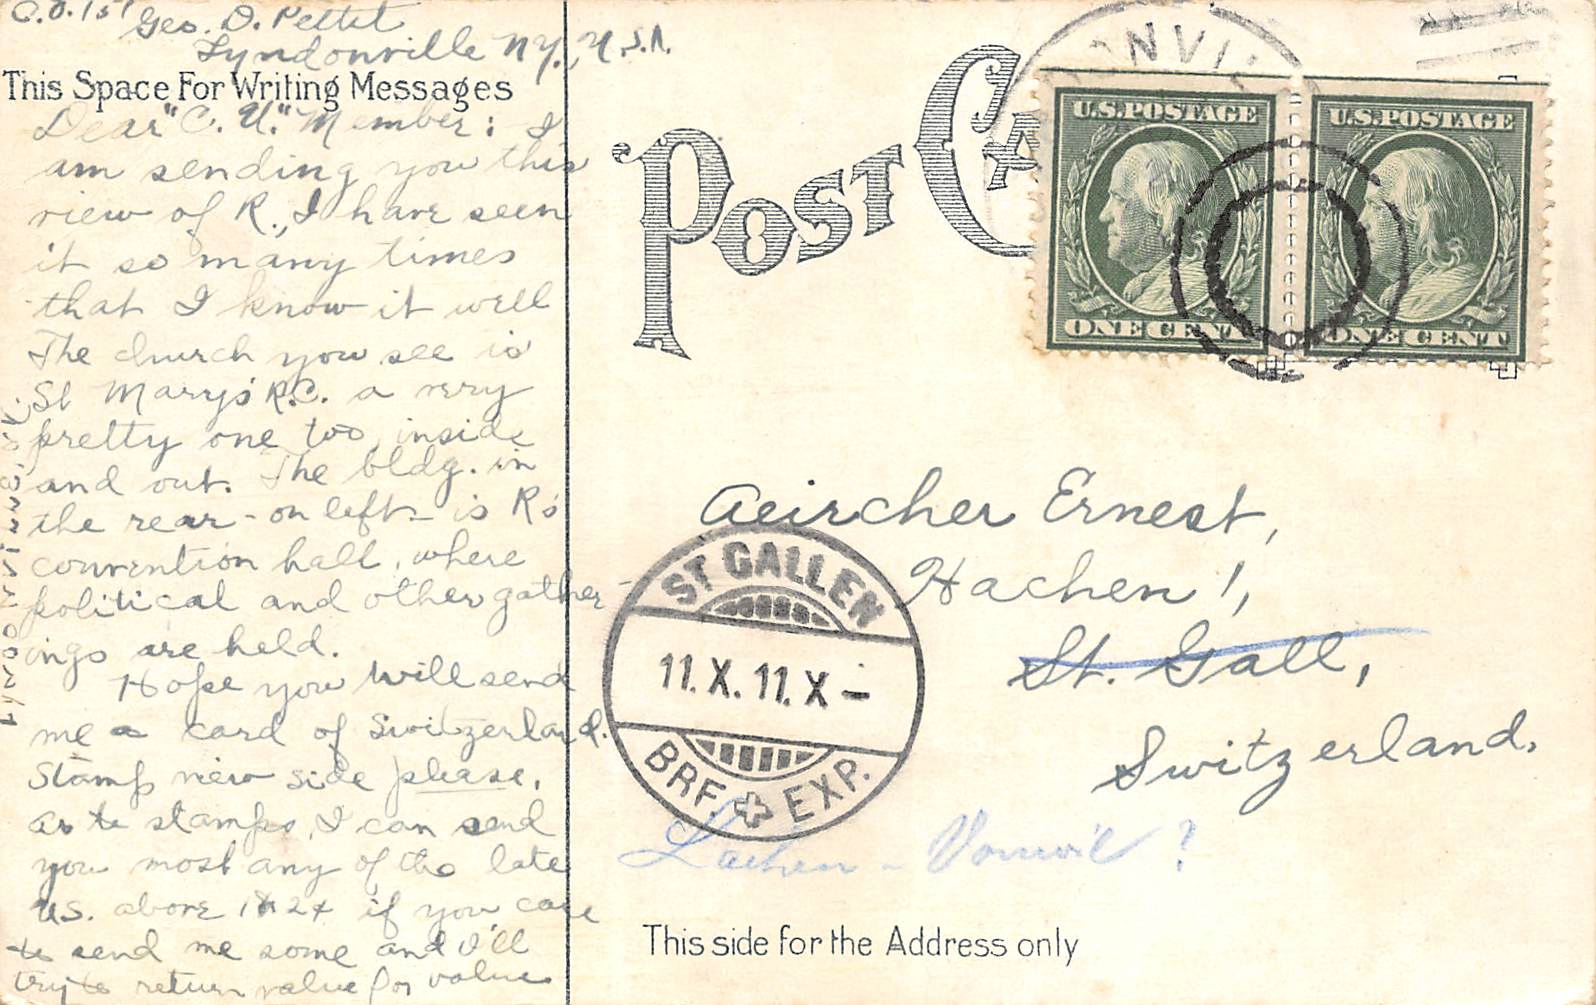 C.O. 151 Geo. D. Pettit
Lyndonville N.Y., U.S.A.
This Space For Writing Messages
Dear "C. U." Member: I
am sending you this
view of R., I have seen
it so many times
that I know it well
The church you see is
St Mary's R.C. a very
pretty one too, inside
and out. The bldg. in
the rear - on left - is R's
convention hall, where
political and other gather-
ings are held.
Hope you will send
me a card of Switzerland.
Stamp view side please.
As to stamps, I can send
you most any of the late
U.S. above if you care
to send me some and I'll
try to return value for value
LYNDONVILLE, N.Y.
POST CA
ONVIL
U.S. POSTAGE
ONE CENT
U.S. POSTAGE
ONE CENT
Aeircher Ernest,
Hachen 1,
St. Gall,
Switzerland.
ST GALLEN
11. X. 11. X -
BRF. EXP.
Lachen - Vonwil ?
This side for the Address only